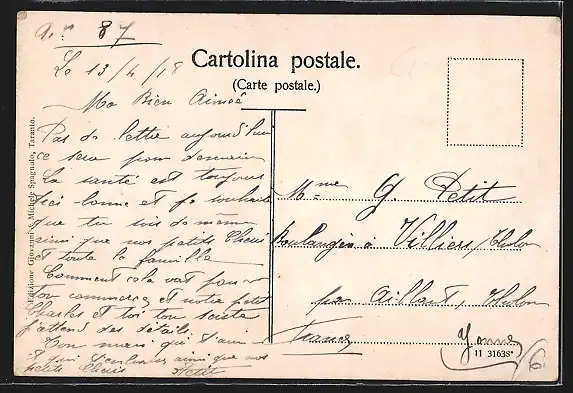 n° 87
Le 13/4/18
Cartolina postale.
(Carte postale.)
Ma Bien Aimée
Pas de lettre aujourd'hui
ce sera pour demain
La santé est toujours
ici bonne et je souhaite
que tu sois de même
ainsi que nos petits Chéris
et toute la famille
Comment cela va
ton commerce et notre petit
Charles et toi ton
j'attend des détails.
Ton mari qui t'aime
et qui ainsi que nos
petits Chéris Petit
Mme G. Petit
Boulangère à Villiers s/Tholon
par Aillant s/Tholon
France Yonne
11 31638*
6
Edizione Giovanni & Michele Spagnolo, Taranto.